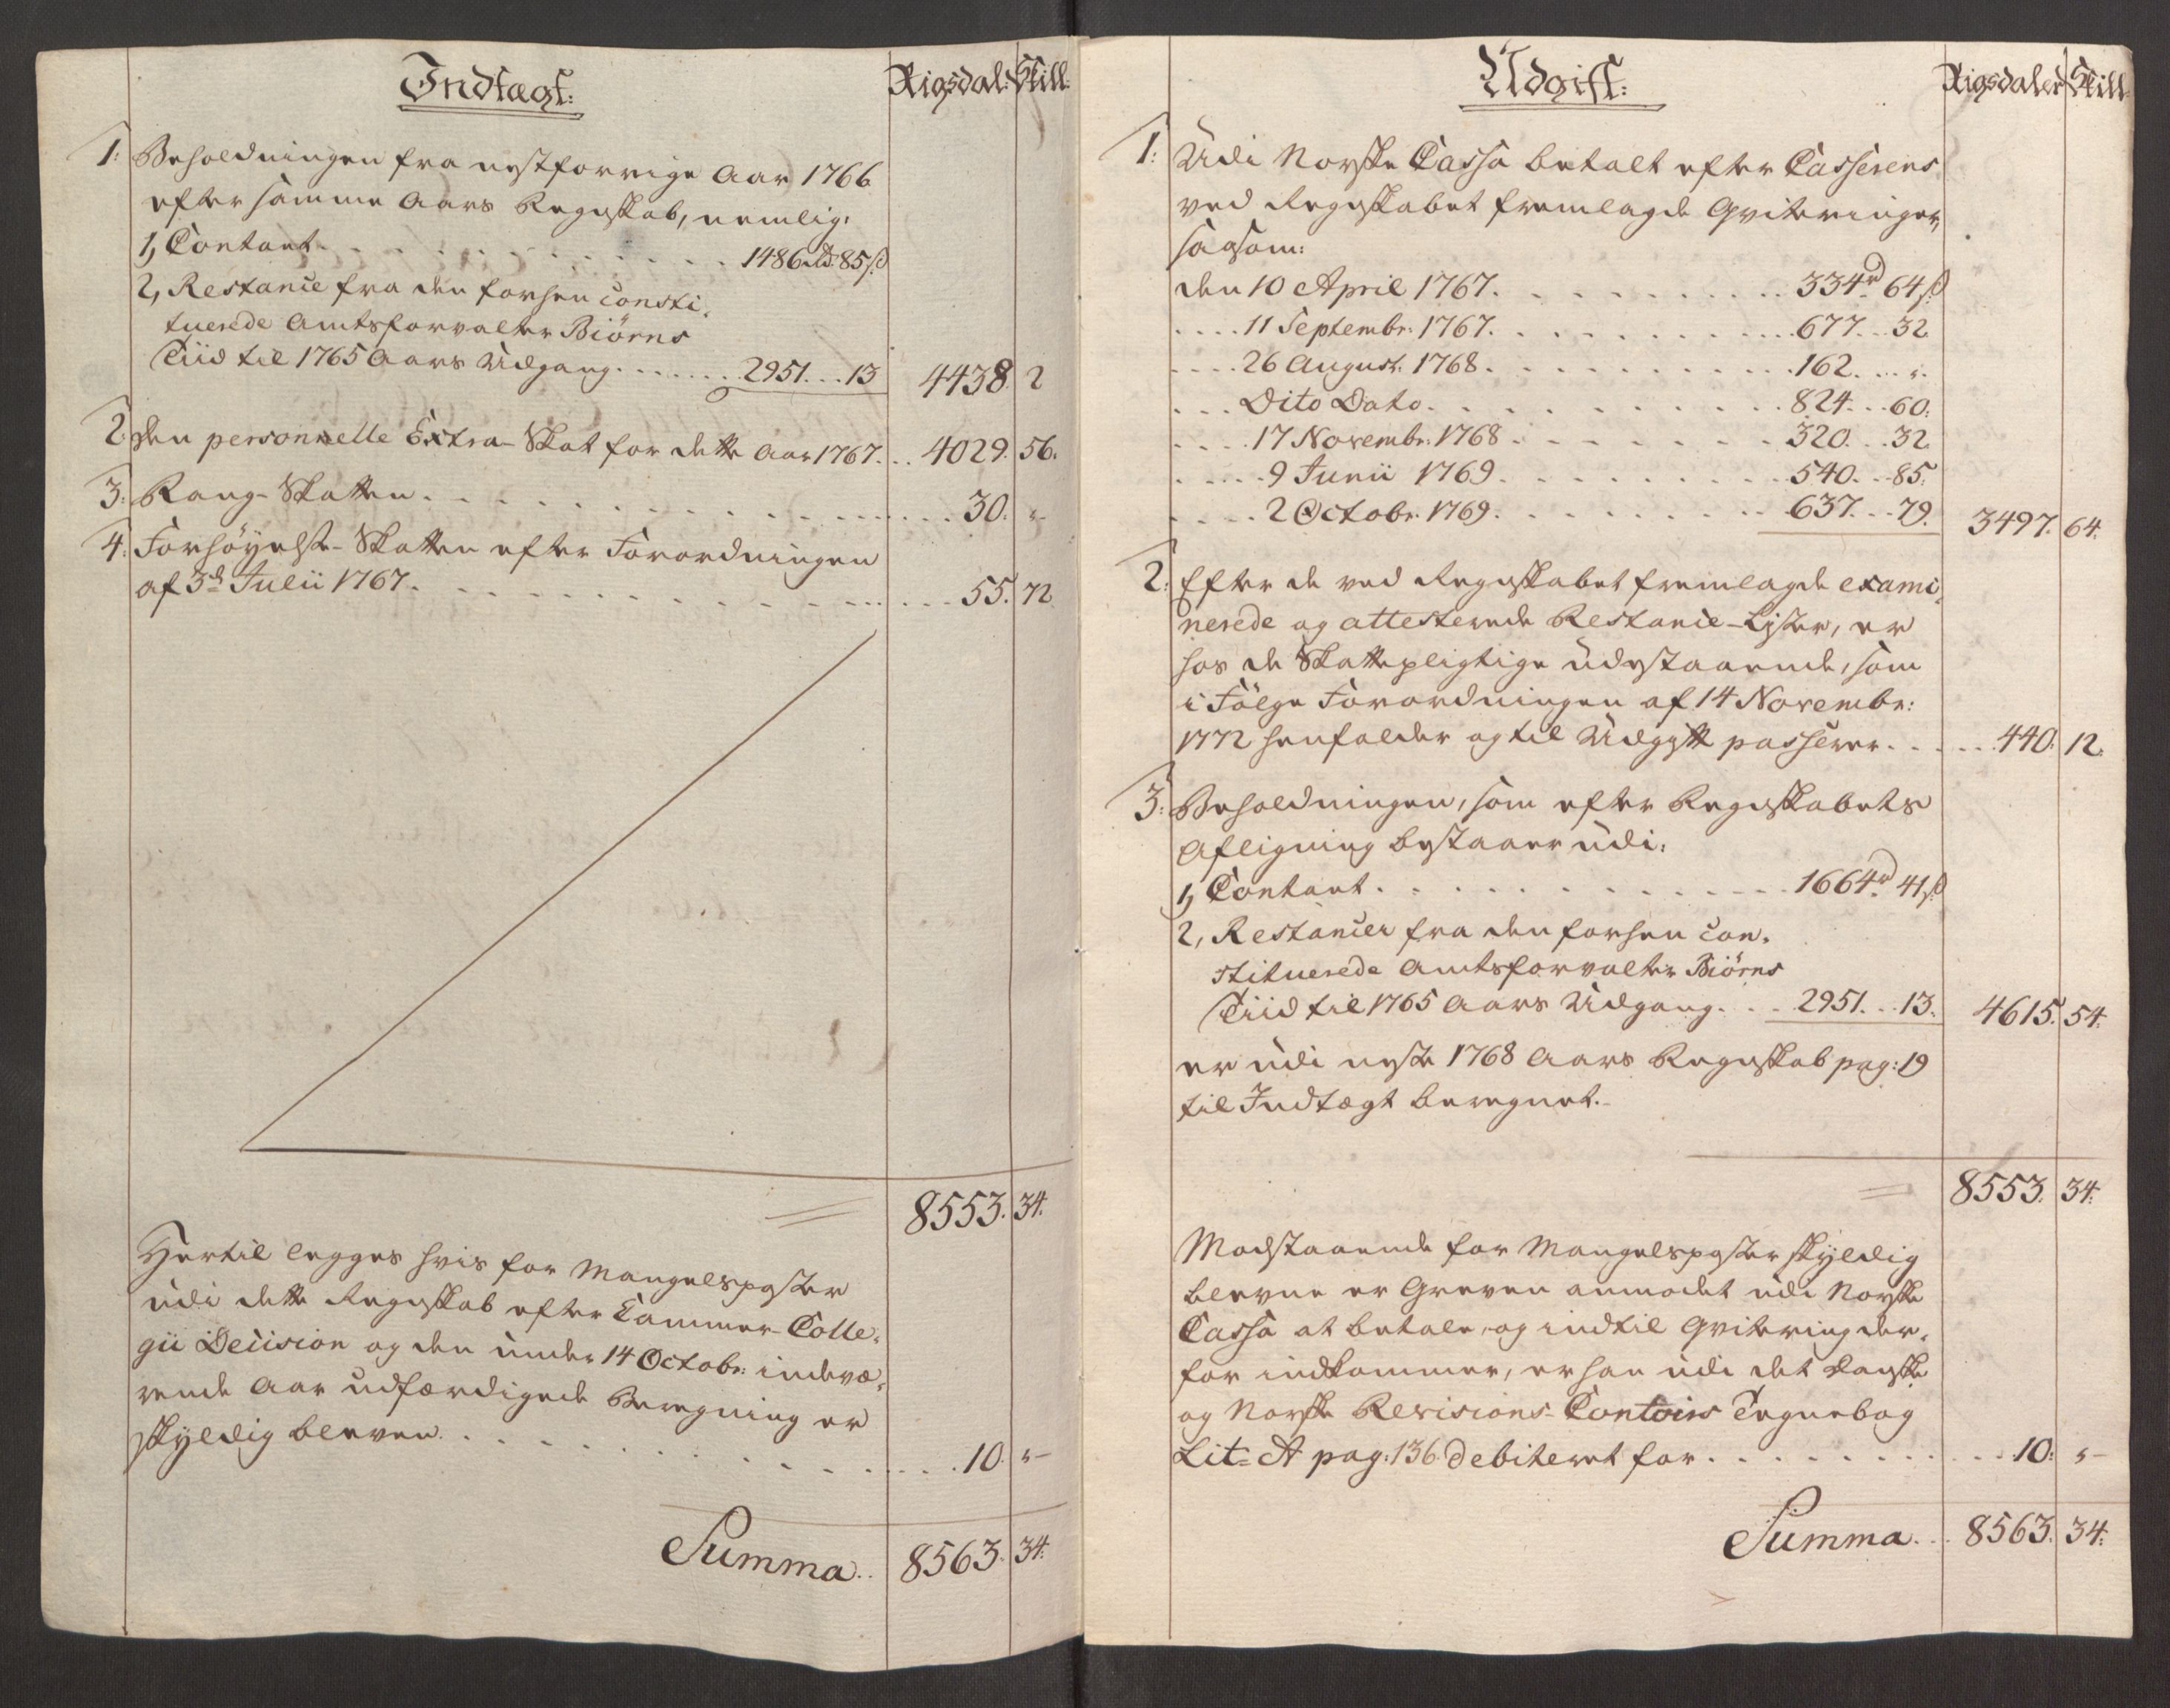 Indtægt:
Rigsdal: Skill:
1: Beholdningen fra nestforrige Aar 1766
efter samme Aars Regnskab, nemlig:
1, Contant . . . . . . . 1486 rd 85 s
2, Restance fra den forhen consti-
tuerede Amtsforvalter Biörns
Tiid til 1765 Aars Udgang . . . . 2951 . . 13 4438. 2
2. Den personnelle Extra-Skat for dette Aar 1767. . . 4029. 56.
3: Rang-Skatten . . . . . . . 30. "
4: Forhöyelse-Skatten efter Forordningen
af 3d Julii 1767 . . . . . . . 55. 72
8553. 34.
Hertil legges hvis for Mangelsposter
udi dette Regnskab efter Cammer-Colle-
gii Decision og den under 14 Octobr: indevæ-
rende Aar udfærdigede Beregning er
skyldig bleven . . . . . . . 10. "
Summa . . 8563. 34.
Udgift:
Rigsdaler Skill:
1: Udi Norske Cassa betalt efter Casserens
ved Regnskabet fremlagde Qviteringer,
saasom:
den 10 April 1767 . . . . . . 334 rd 64 s
. . . . 11 Septembr: 1767 . . . . . . 677 . . 32
. . . . 26 August: 1768 . . . . . . 162 . . "
. . . Dito Dato . . . . . . 824 . . 60.
. . . . 17 Novembr: 1768 . . . . . . 320 . . 32
. . . . 9 Junii 1769 . . . . . . 540 . . 85.
. . . . 2 Octobr. 1769 . . . . . . 637 . . 79. 3497. 64.
2: Efter de ved Regnskabet fremlagde exami-
nerede og attesterede Restance-Lister, er
hos de Skattepligtige udestaaende, som
i Fölge Forordningen af 14 Novembr:
1772 henfalder og til Udgift passerer . . . . 440. 12.
3: Beholdningen, som efter Regnskabets
Afligning bestaaer udi:
1, Contant . . . . . . . 1664 rd 41 s
2, Restancer fra den forhen con-
stituerede Amtsforvalter Biörns
Tiid til 1765 Aars Udgang . . . 2951 . . 13. 4615. 54.
er udi neste 1768 Aars Regnskab pag: 19
til Indtægt beregnet.
8553. 34.
Modstaaende for Mangelsposter skyldig
blevne er Greven anmodet udi Norske
Cassa at betale, og indtil Qvitering der-
for indkommer, er han udi det Danske
og Norske Revisions-Contoirs Tegnebog
Lit: A pag: 136 debiteret for . . . . . . . 10: "
Summa . . . 8563. 34.